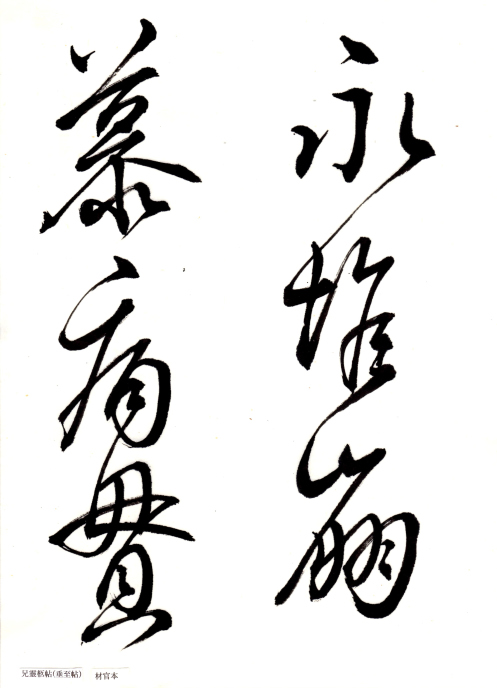 永惟崩
慕痛貫
兄靈柩帖(垂至帖)　材官本